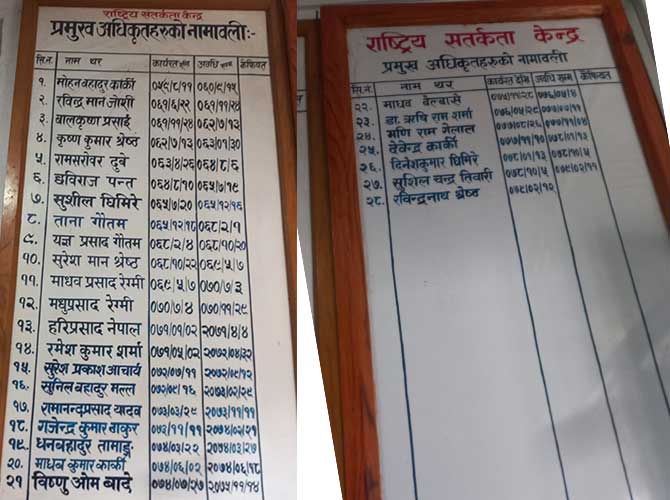 राष्ट्रिय सतर्कता केन्द्र
प्रमुख अधिकृतहरुको नामावली:-
सि.नं. नाम थर कार्यरत अवधि कैफियत
१. मोहनबहादुर कार्की ०५९/८/११ ०६०/९/१५
२. रविन्द्र मान जोशी ०६१/६/२२ ०६१/११/२४
३. बालकृष्ण प्रसाई ०६१/११/२४ ०६२/७/१३
४. कृष्ण कुमार श्रेष्ठ ०६२/७/१३ ०६३/०१/३०
५. रामसरोवर दुबे ०६३/४/२६ ०६४/८/६
६. छविराज पन्त ०६४/८/१० ०६५/७/१९
७. सुशील घिमिरे ०६५/७/२० ०६५/१२/१६
८. ताना गौतम ०६५/१२/१८ ०६८/२/१
९. यज्ञ प्रसाद गौतम ०६८/२/४ ०६८/१०/२०
१०. सुरेश मान श्रेष्ठ ०६८/१०/२२ ०६९/५/७
११. माधव प्रसाद रेग्मी ०६९/५/७ ०७०/७/३
१२. मधुप्रसाद रेग्मी ०७०/७/४ ०७०/११/२९
१३. हरिप्रसाद नेपाल ०७१/०१/०२ २०७१/४/४
१४. रमेश कुमार शर्मा ०७१/०५/०२ २०७२/०४/३२
१५. सुरेश प्रकाश आचार्य ०७२/०७/११ २०७२/०९/१२
१६. सुनिल बहादुर मल्ल ०७२/०९/१६ २०७३/०२/२९
१७. रामानन्दप्रसाद यादव ०७३/०३/२९ २०७३/११/११
१८. गजेन्द्र कुमार ठाकुर ०७३/११/११ २०७४/०२/२१
१९. धनबहादुर तामाङ्ग ०७४/०३/२२ २०७४/०३/२७
२०. माधब कुमार कार्की ०७४/०६/०२ २०७४/०६/१८
२१ विष्णु ओम बादे ०७४/०७/२७ २०७५/११/१४
राष्ट्रिय सतर्कता केन्द्र
प्रमुख अधिकृतहरुको नामावली
सि.नं. नाम थर कार्यरत अवधि कैफियत
२२. माधव बेल्बासे ०७५/११/२८ ०७६/०५/४
२३. डा. ऋषि राम शर्मा ०७६/०५/२९ ०७७/०७/११
२४. मणि राम गेलाल ०७७/०८/२६ ०७७/११/०४
२५. देवेन्द्र कार्की ०७७/११/१० ०७८/०१/१३
२६. दिनेशकुमार घिमिरे ०७८/०१/१३ ०७८/१०/५
२७. सुशिल चन्द्र तिवारी ०७८/१०/५ ०७९/०२/११
२८. रविन्द्रनाथ श्रेष्ठ ०७९/०२/१२